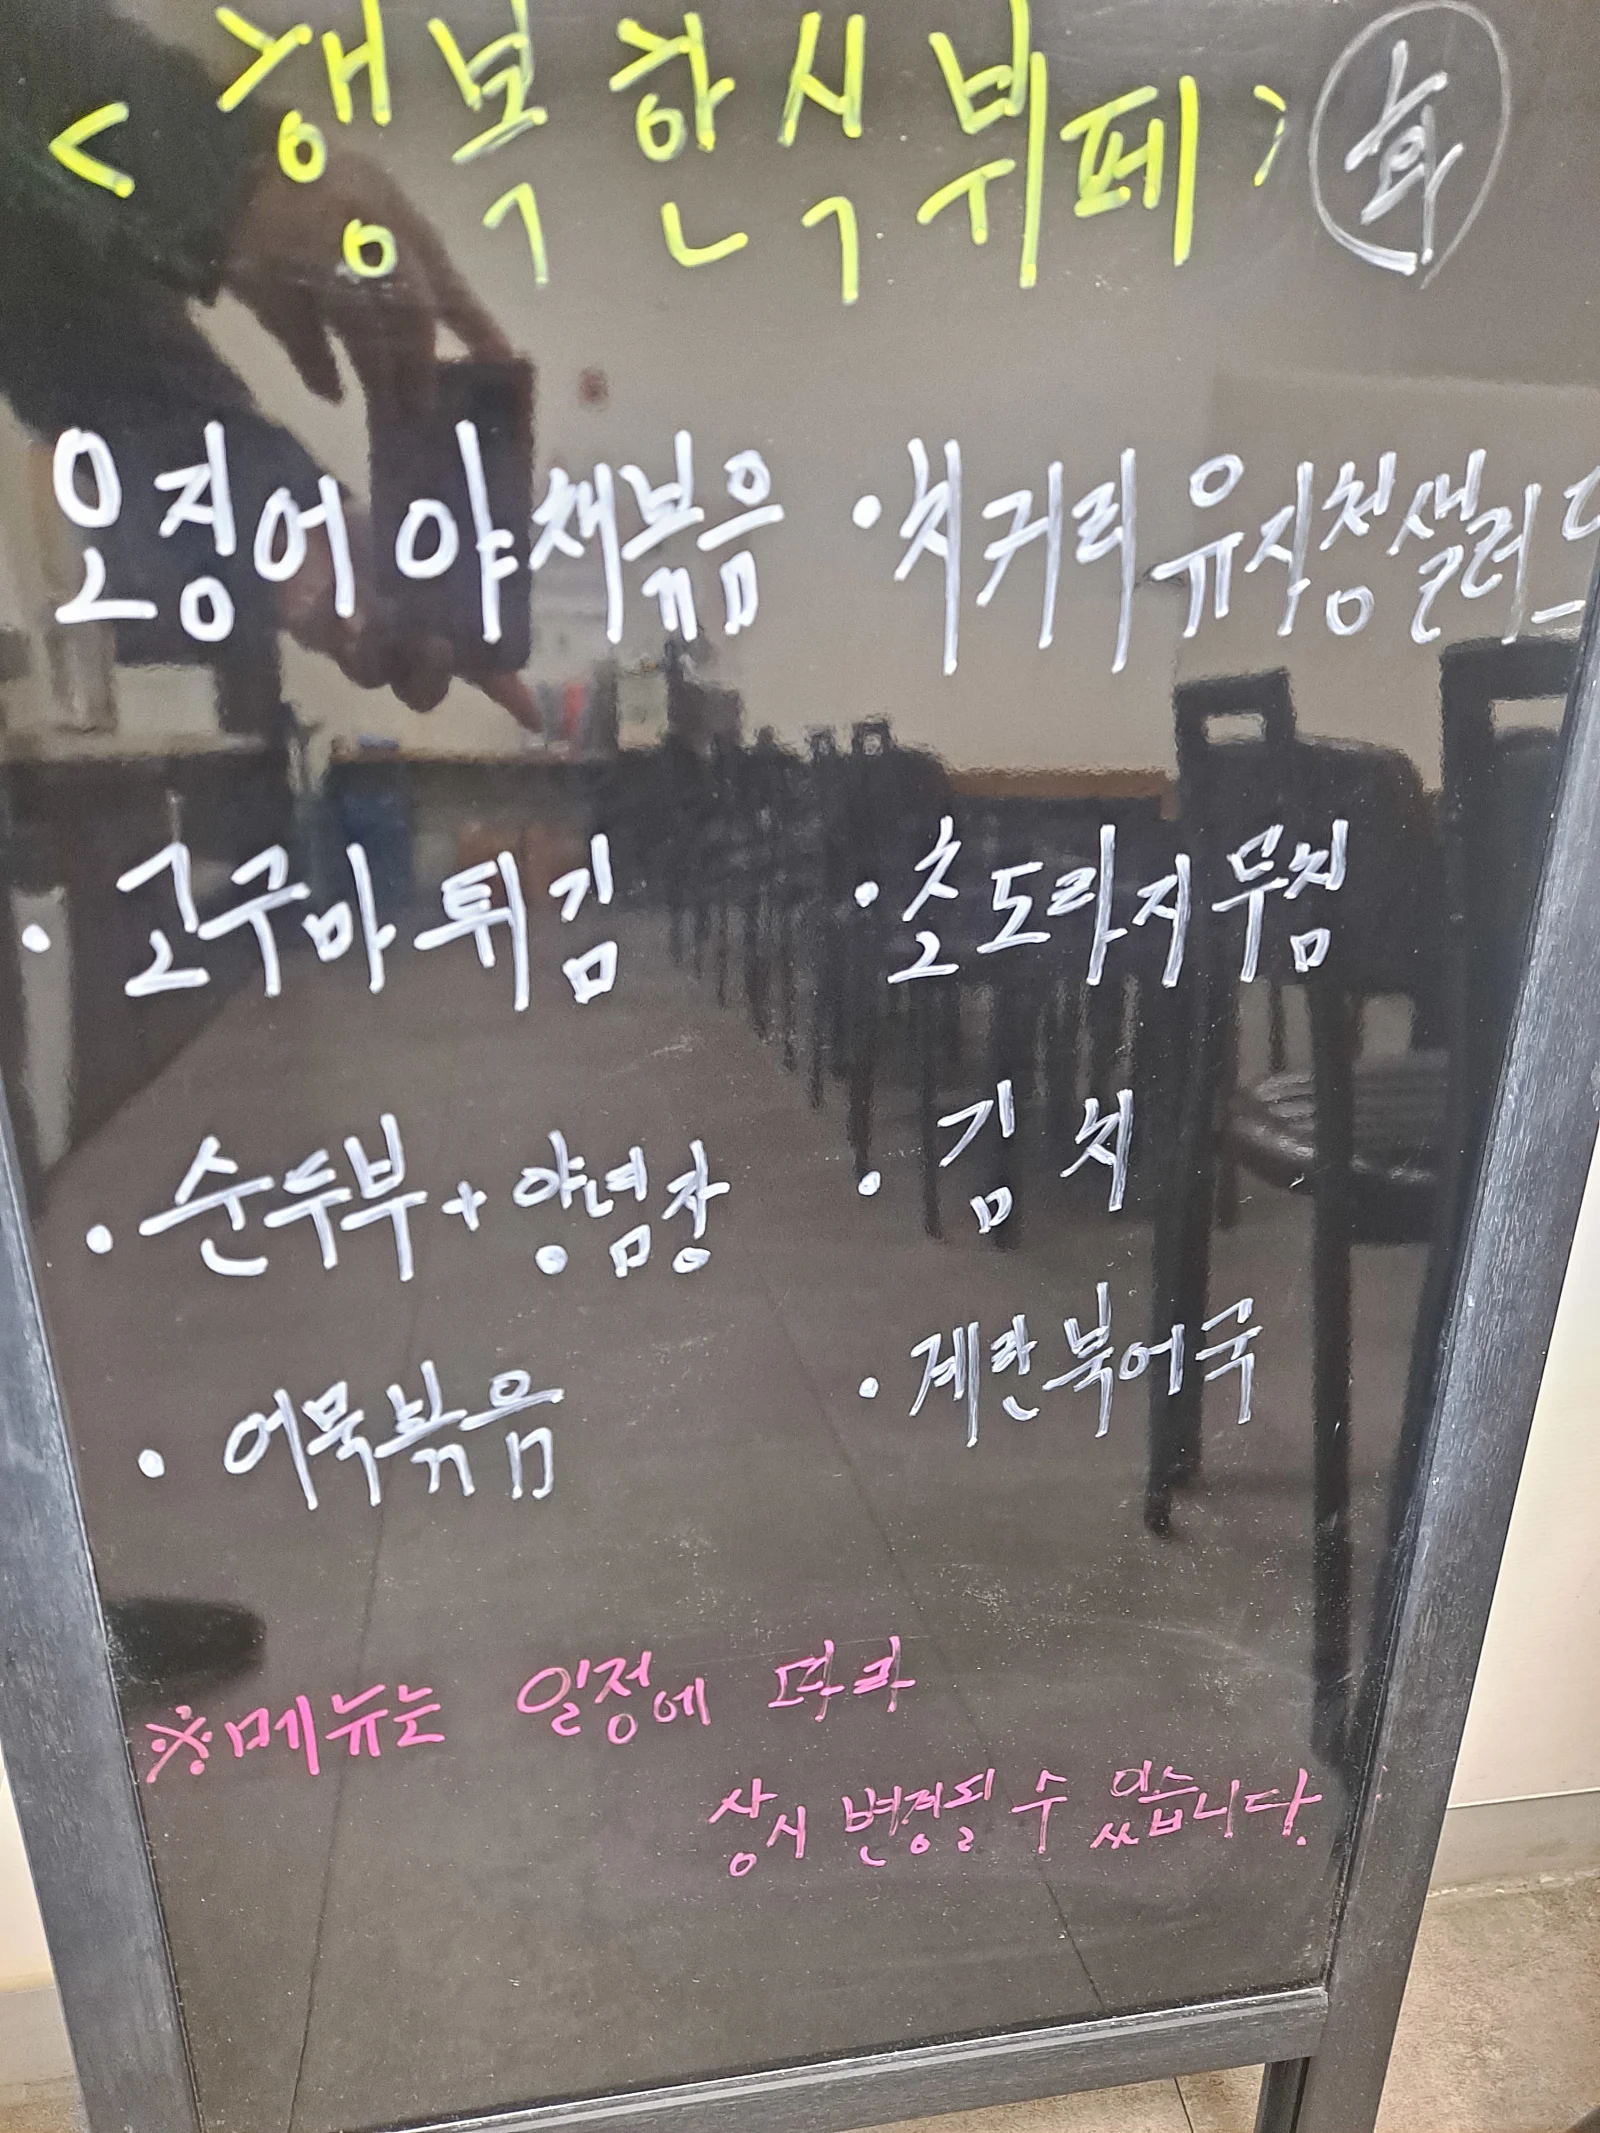 < 행복한식뷔페 > 화
오징어 야채볶음 • 치커리유자청샐러드
• 고구마튀김 • 초도라지무침
• 순두부 + 양념장 • 김치
• 어묵볶음 • 계란북어국
※메뉴는 일정에 따라
상시 변경될 수 있습니다.